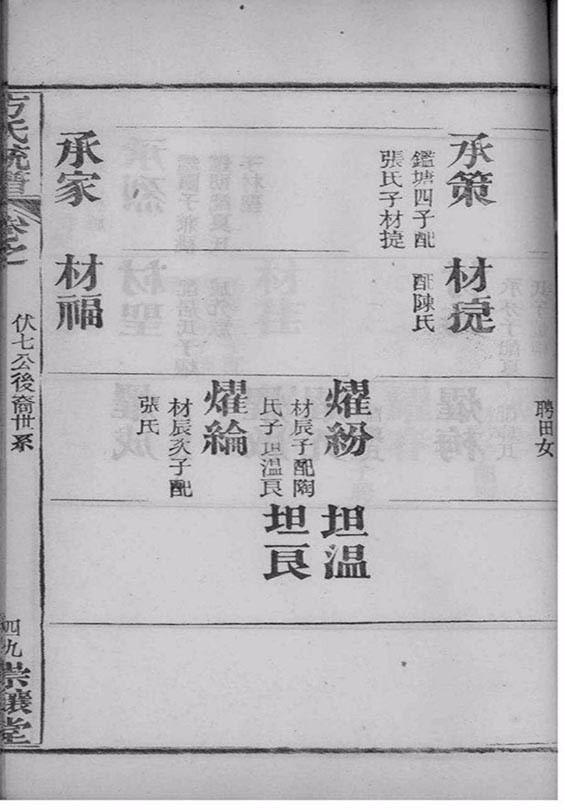 聘田女
承策
鑑塘四子配
張氏子材捷
材捷
配陳氏
燿紛
材辰子配陶
氏子坦溫艮
坦溫
坦艮
燿綸
材辰次子配
張氏
承家
材福
方氏統譜
卷之
伏七公後裔世系
四九
崇讓堂